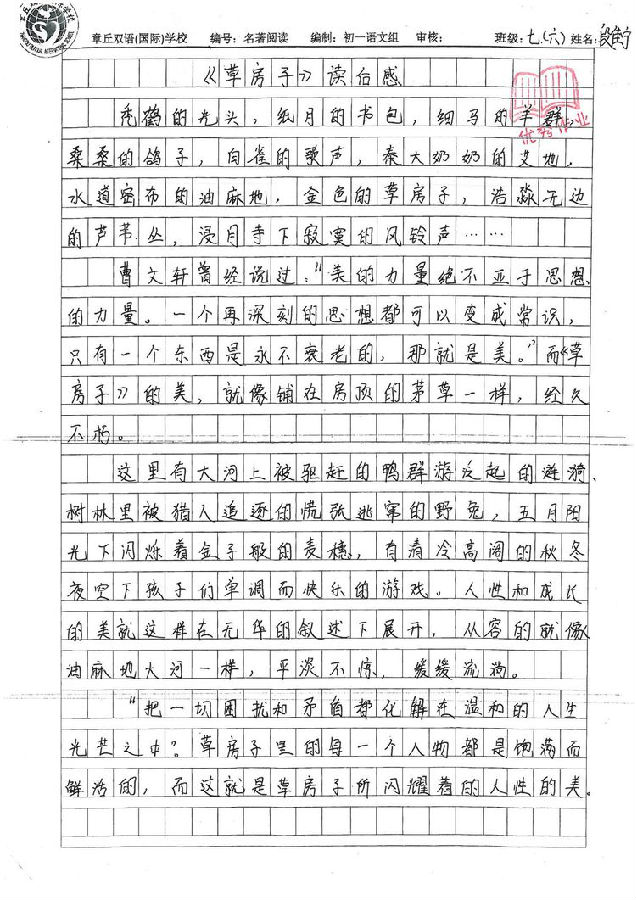 章丘双语(国际)学校 编号：名著阅读 编制：初一语文组 审核： 班级：七.(六) 姓名：
《草房子》读后感
优秀作业
秃鹤的光头，纸月的书包，细马的羊群，
桑桑的鸽子，白雀的歌声，秦大奶奶的艾地，
水道密布的油麻地，金色的草房子，浩淼无边
的芦苇丛，浸月寺下寂寞的风铃声……
曹文轩曾经说过：“美的力量绝不亚于思想
的力量。一个再深刻的思想都可以变成常识，
只有一个东西是永不衰老的，那就是美。”而《草
房子》的美，就像铺在房顶的茅草一样，经久
不朽。
这里有大河上被驱赶的鸭群游泛起的涟漪、
树林里被猎人追逐的慌张逃窜的野兔，五月阳
光下闪烁着金子般的麦穗，有着冷高阔的秋冬
夜空下孩子们单调而快乐的游戏。人性和成长
的美就这样在无华的叙述下展开，从容的就像
油麻地大河一样，平淡不惊，缓缓流淌。
“把一切困扰和矛盾都化解在温和的人生
光芒之中？草房子里的每一个人物都是饱满而
鲜活的，而这就是草房子所闪耀着的人性的美。